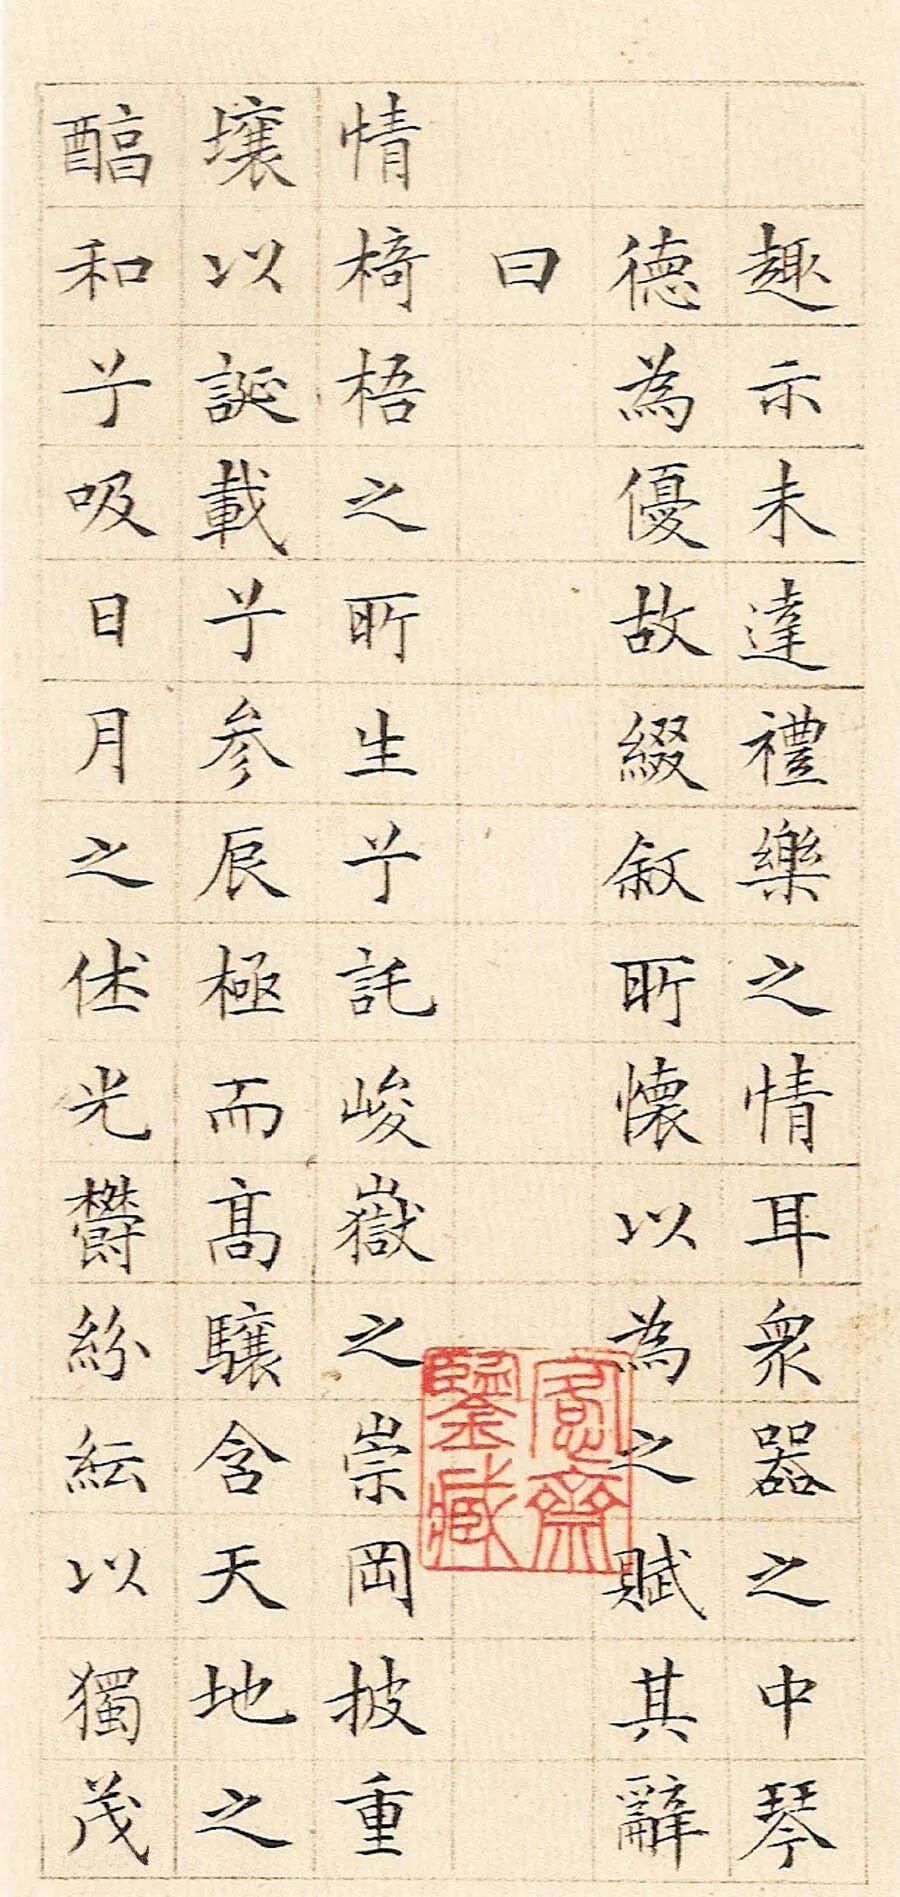 趣示未達禮樂之情耳衆器之中琴
德為優故綴叙所懷以為之賦其辭
曰
情椅梧之所生兮託峻嶽之崇岡披重
壤以誕載兮參辰極而高驤含天地之
醕和兮吸日月之休光鬱紛紜以獨茂
愙齋鑒藏